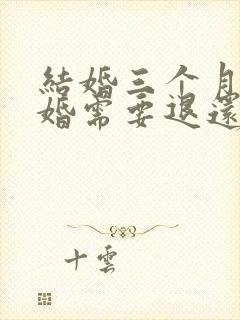 結婚三个月
婚需要退還
十雲